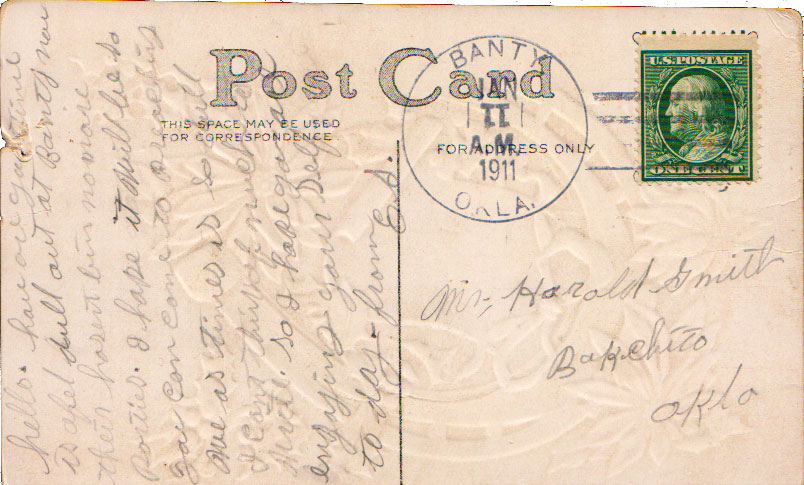 Post Card
THIS SPACE MAY BE USED
FOR CORRESPONDENCE
FOR ADDRESS ONLY
BANTY
JAN
11
A.M.
1911
OKLA.
U.S. POSTAGE
ONE CENT
Mr, Harold Smith
Bokchito
Okla
hello. how are you time
is apel dull out at Banty now
their hasent bin no more
Parties. I hope it will be so
you can come to
one as times is So dull
I cant think of much to
write. So I hope you are
enjoying your Self
to day. from Ed.